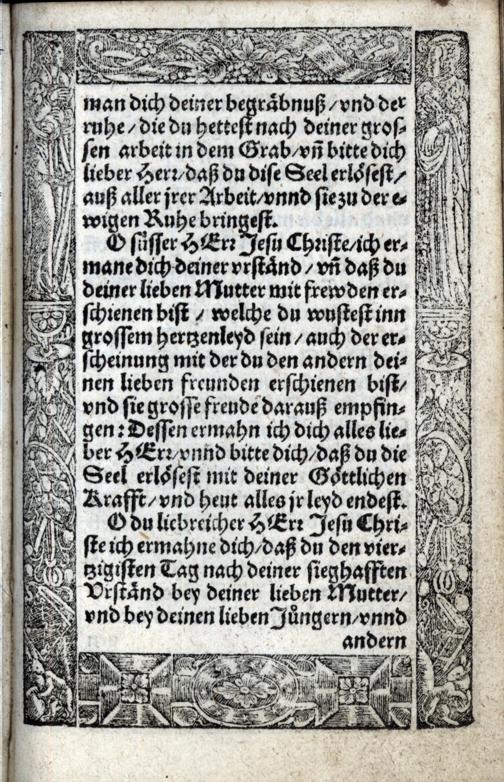 man dich deiner begräbnuß / vnd der
ruhe / die du hettest nach deiner gros-
sen arbeit in dem Grab / vñ bitte dich
lieber Herr / daß du dise Seel erlösest /
auß aller jrer Arbeit / vnnd sie zu der e-
wigen Ruhe bringest.
O süsser HErr Jesu Christe / ich er-
mane dich deiner vrständ / vñ daß du
deiner lieben Mutter mit frewden er-
schienen bist / welche du wustest inn
grossem hertzenleyd sein / auch der er-
scheinung mit der du den andern dei-
nen lieben freunden erschienen bist /
vnd sie grosse freude darauß empfin-
gen : Dessen ermahn ich dich alles lie-
ber HErr / vnnd bitte dich / daß du die
Seel erlösest mit deiner Göttlichen
Krafft / vnd heut alles jr leyd endest.
O du liebreicher HErr Jesu Chri-
ste ich ermahne dich / daß du den vier-
tzigisten Tag nach deiner sieghafften
Vrständ bey deiner lieben Mutter /
vnd bey deinen lieben Jůngern / vnnd
andern